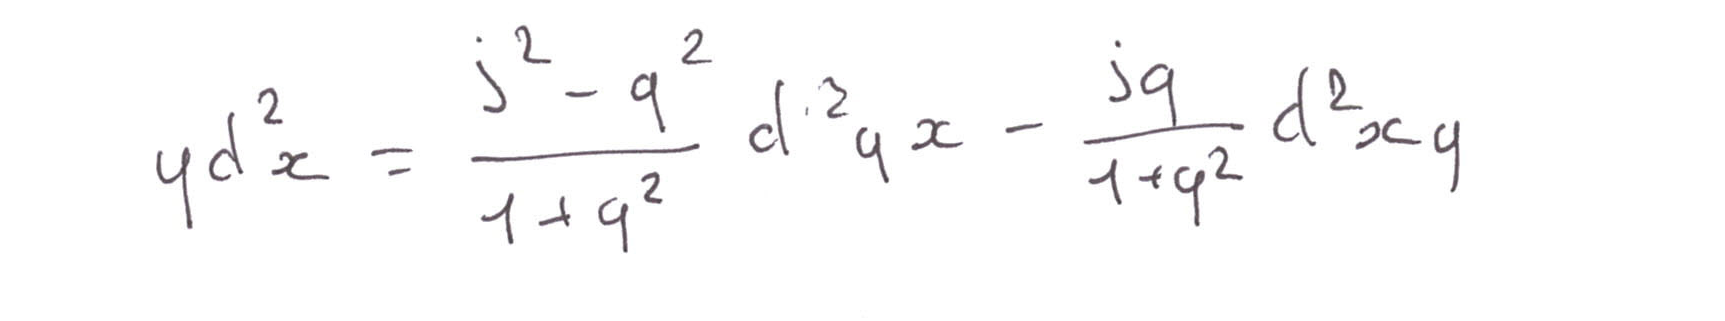 yd²x = \frac{j² - q²}{1 + q²} d²yx - \frac{jq}{1 + q²} d²xy